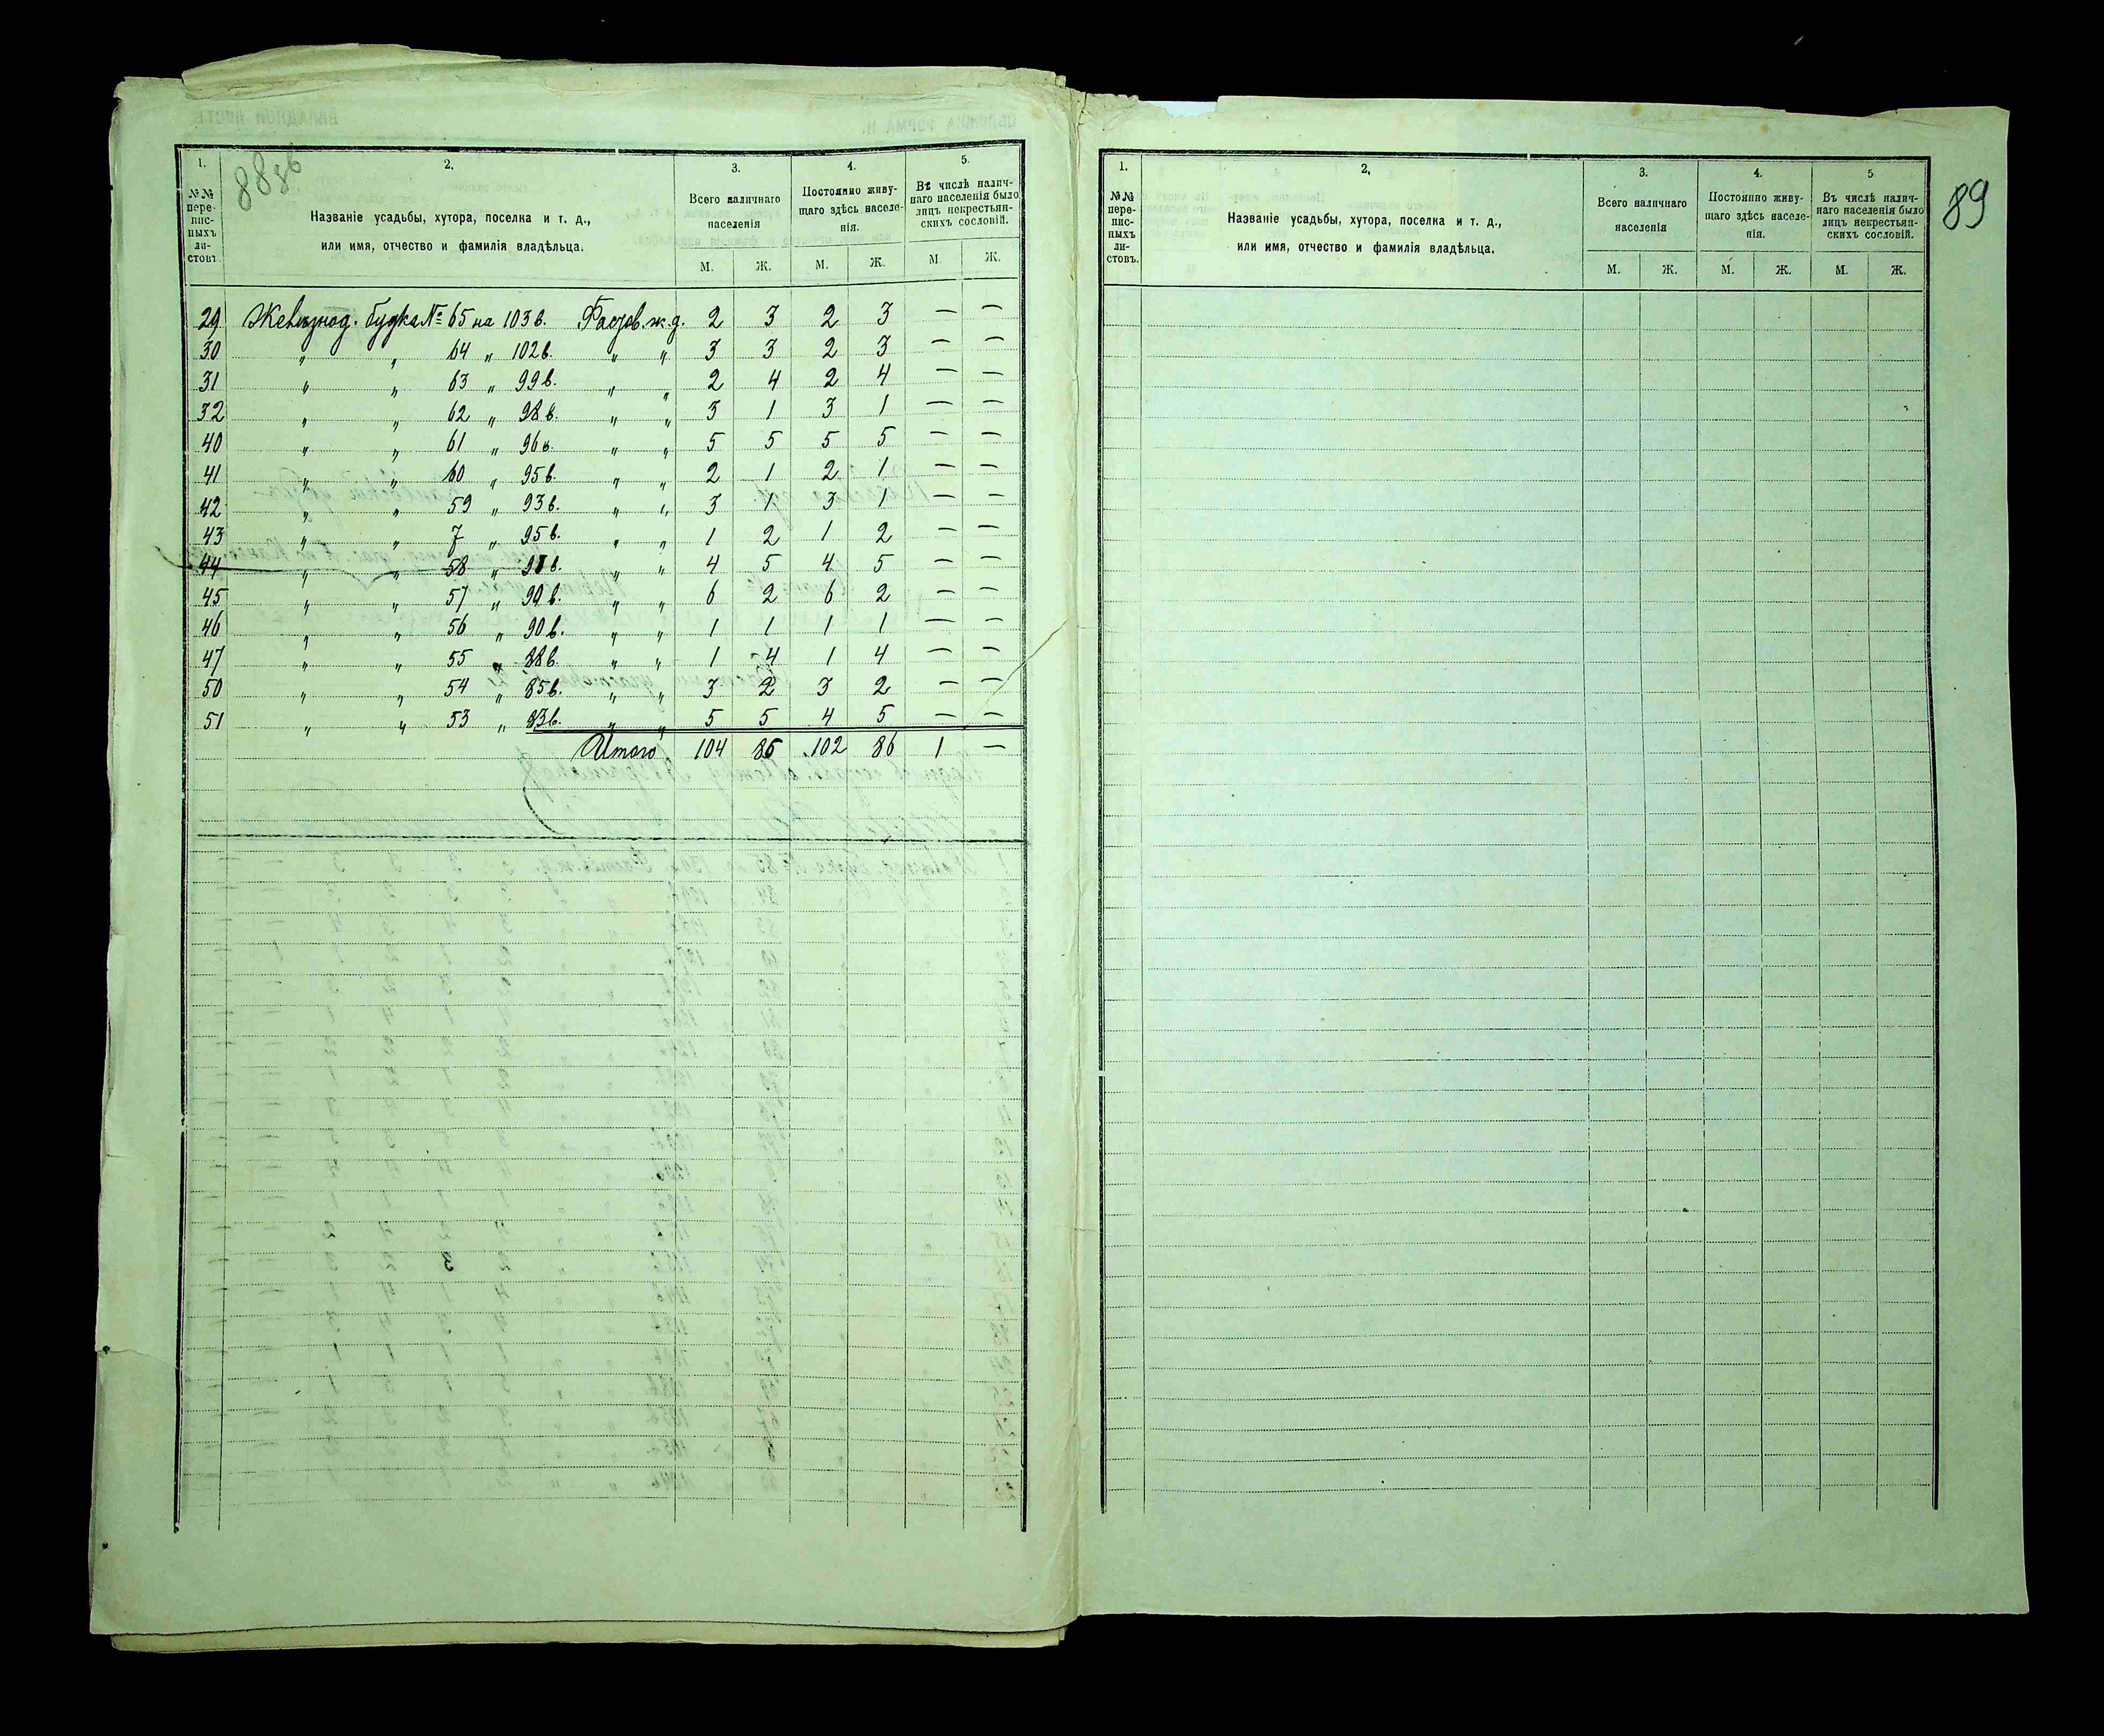 88 об
1. 2. 3. 4. 5.
№№ пере-пис-ныхъ ли-стовъ. Названіе усадьбы, хутора, поселка и т. д., или имя, отчество и фамилія владѣльца. Всего наличнаго населенія Постоянно живу-щаго здѣсь населе-нія. Въ числѣ налич-наго населенія было лицъ некрестьян-скихъ сословій.
М. Ж. М. Ж. М. Ж.
29 Желѣзнод. будка № 65 на 103 в. Фастов. ж. д. 2 3 2 3 — —
30 " " 64 " 102 в. " " 3 3 2 3 — —
31 " " 63 " 99 в. " " 2 4 2 4 — —
32 " " 62 " 98 в. " " 3 1 3 1 — —
40 " " 61 " 96 в. " " 5 5 5 5 — —
41 " " 60 " 95 в. " " 2 1 2 1 — —
42 " " 59 " 93 в. " " 3 1 3 1 — —
43 " " 7 " 95 в. " " 1 2 1 2 — —
44 " " 58 " в. " " 4 5 4 5 — —
45 " " 57 " в. " " 6 2 6 2 — —
46 " " 56 " 90 в. " " 1 1 1 1 — —
47 " " 55 " 88 в. " " 1 4 1 4 — —
50 " " 54 " 85 в. " " 3 2 3 2 — —
51 " " 53 " 83 в. " " 5 5 4 5 — —
Итого 104 86 102 86 1 —
89
1. 2. 3. 4. 5
№№ пере-пис-ныхъ ли-стовъ. Названіе усадьбы, хутора, поселка и т. д., или имя, отчество и фамилія владѣльца. Всего наличнаго населенія Постоянно живу-щаго здѣсь населе-нія. Въ числѣ налич-наго населенія было лицъ некрестьян-скихъ сословій.
М. Ж. М. Ж. М. Ж.